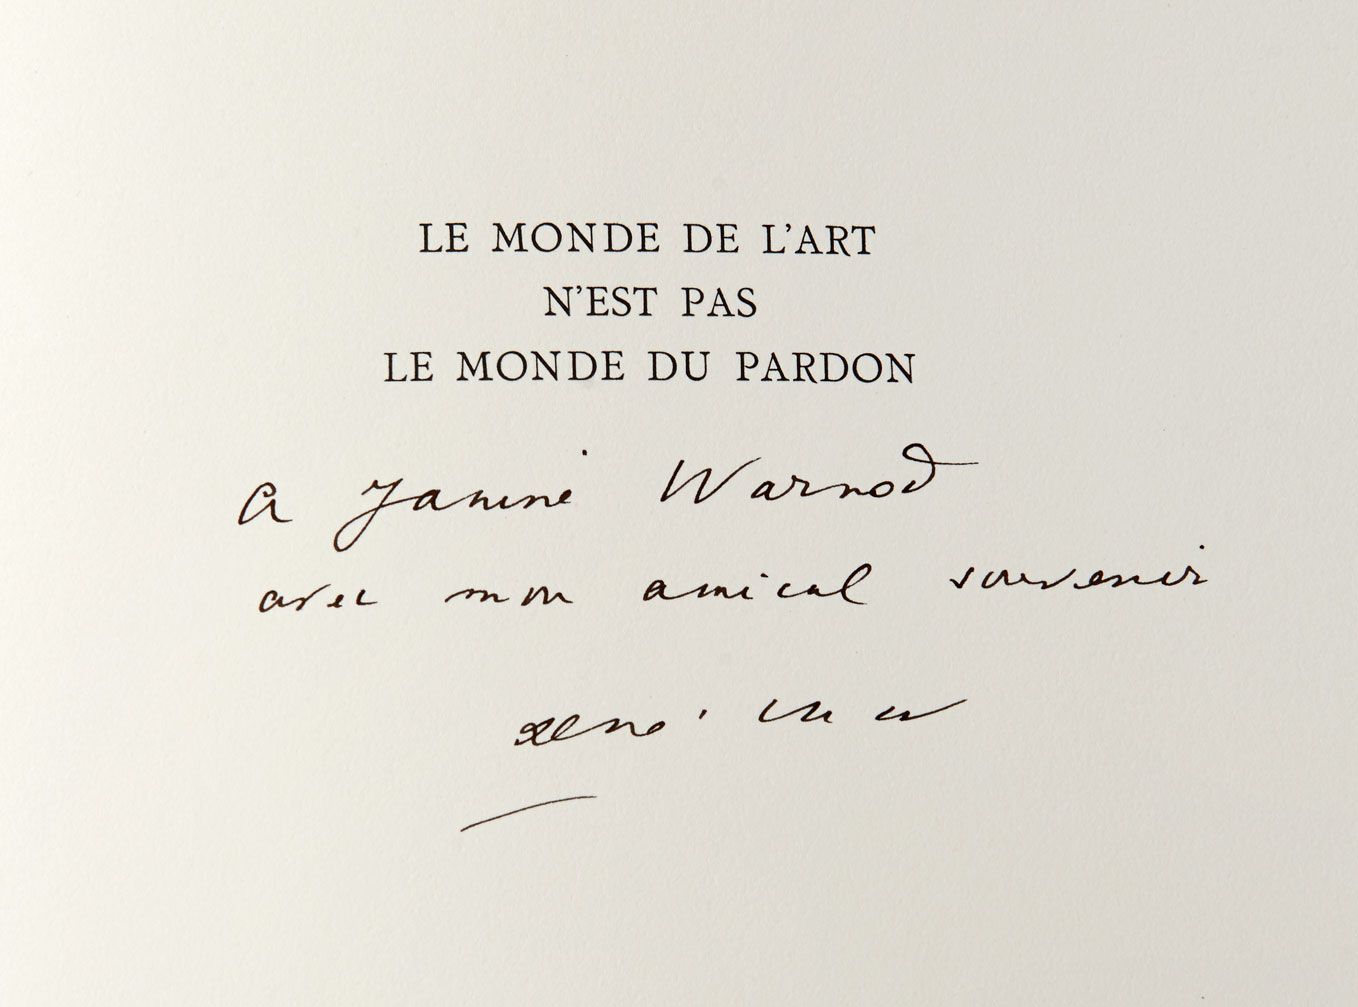 LE MONDE DE L'ART
N'EST PAS
LE MONDE DU PARDON
A Janine Warnod
avec mon amical souvenir
René Char